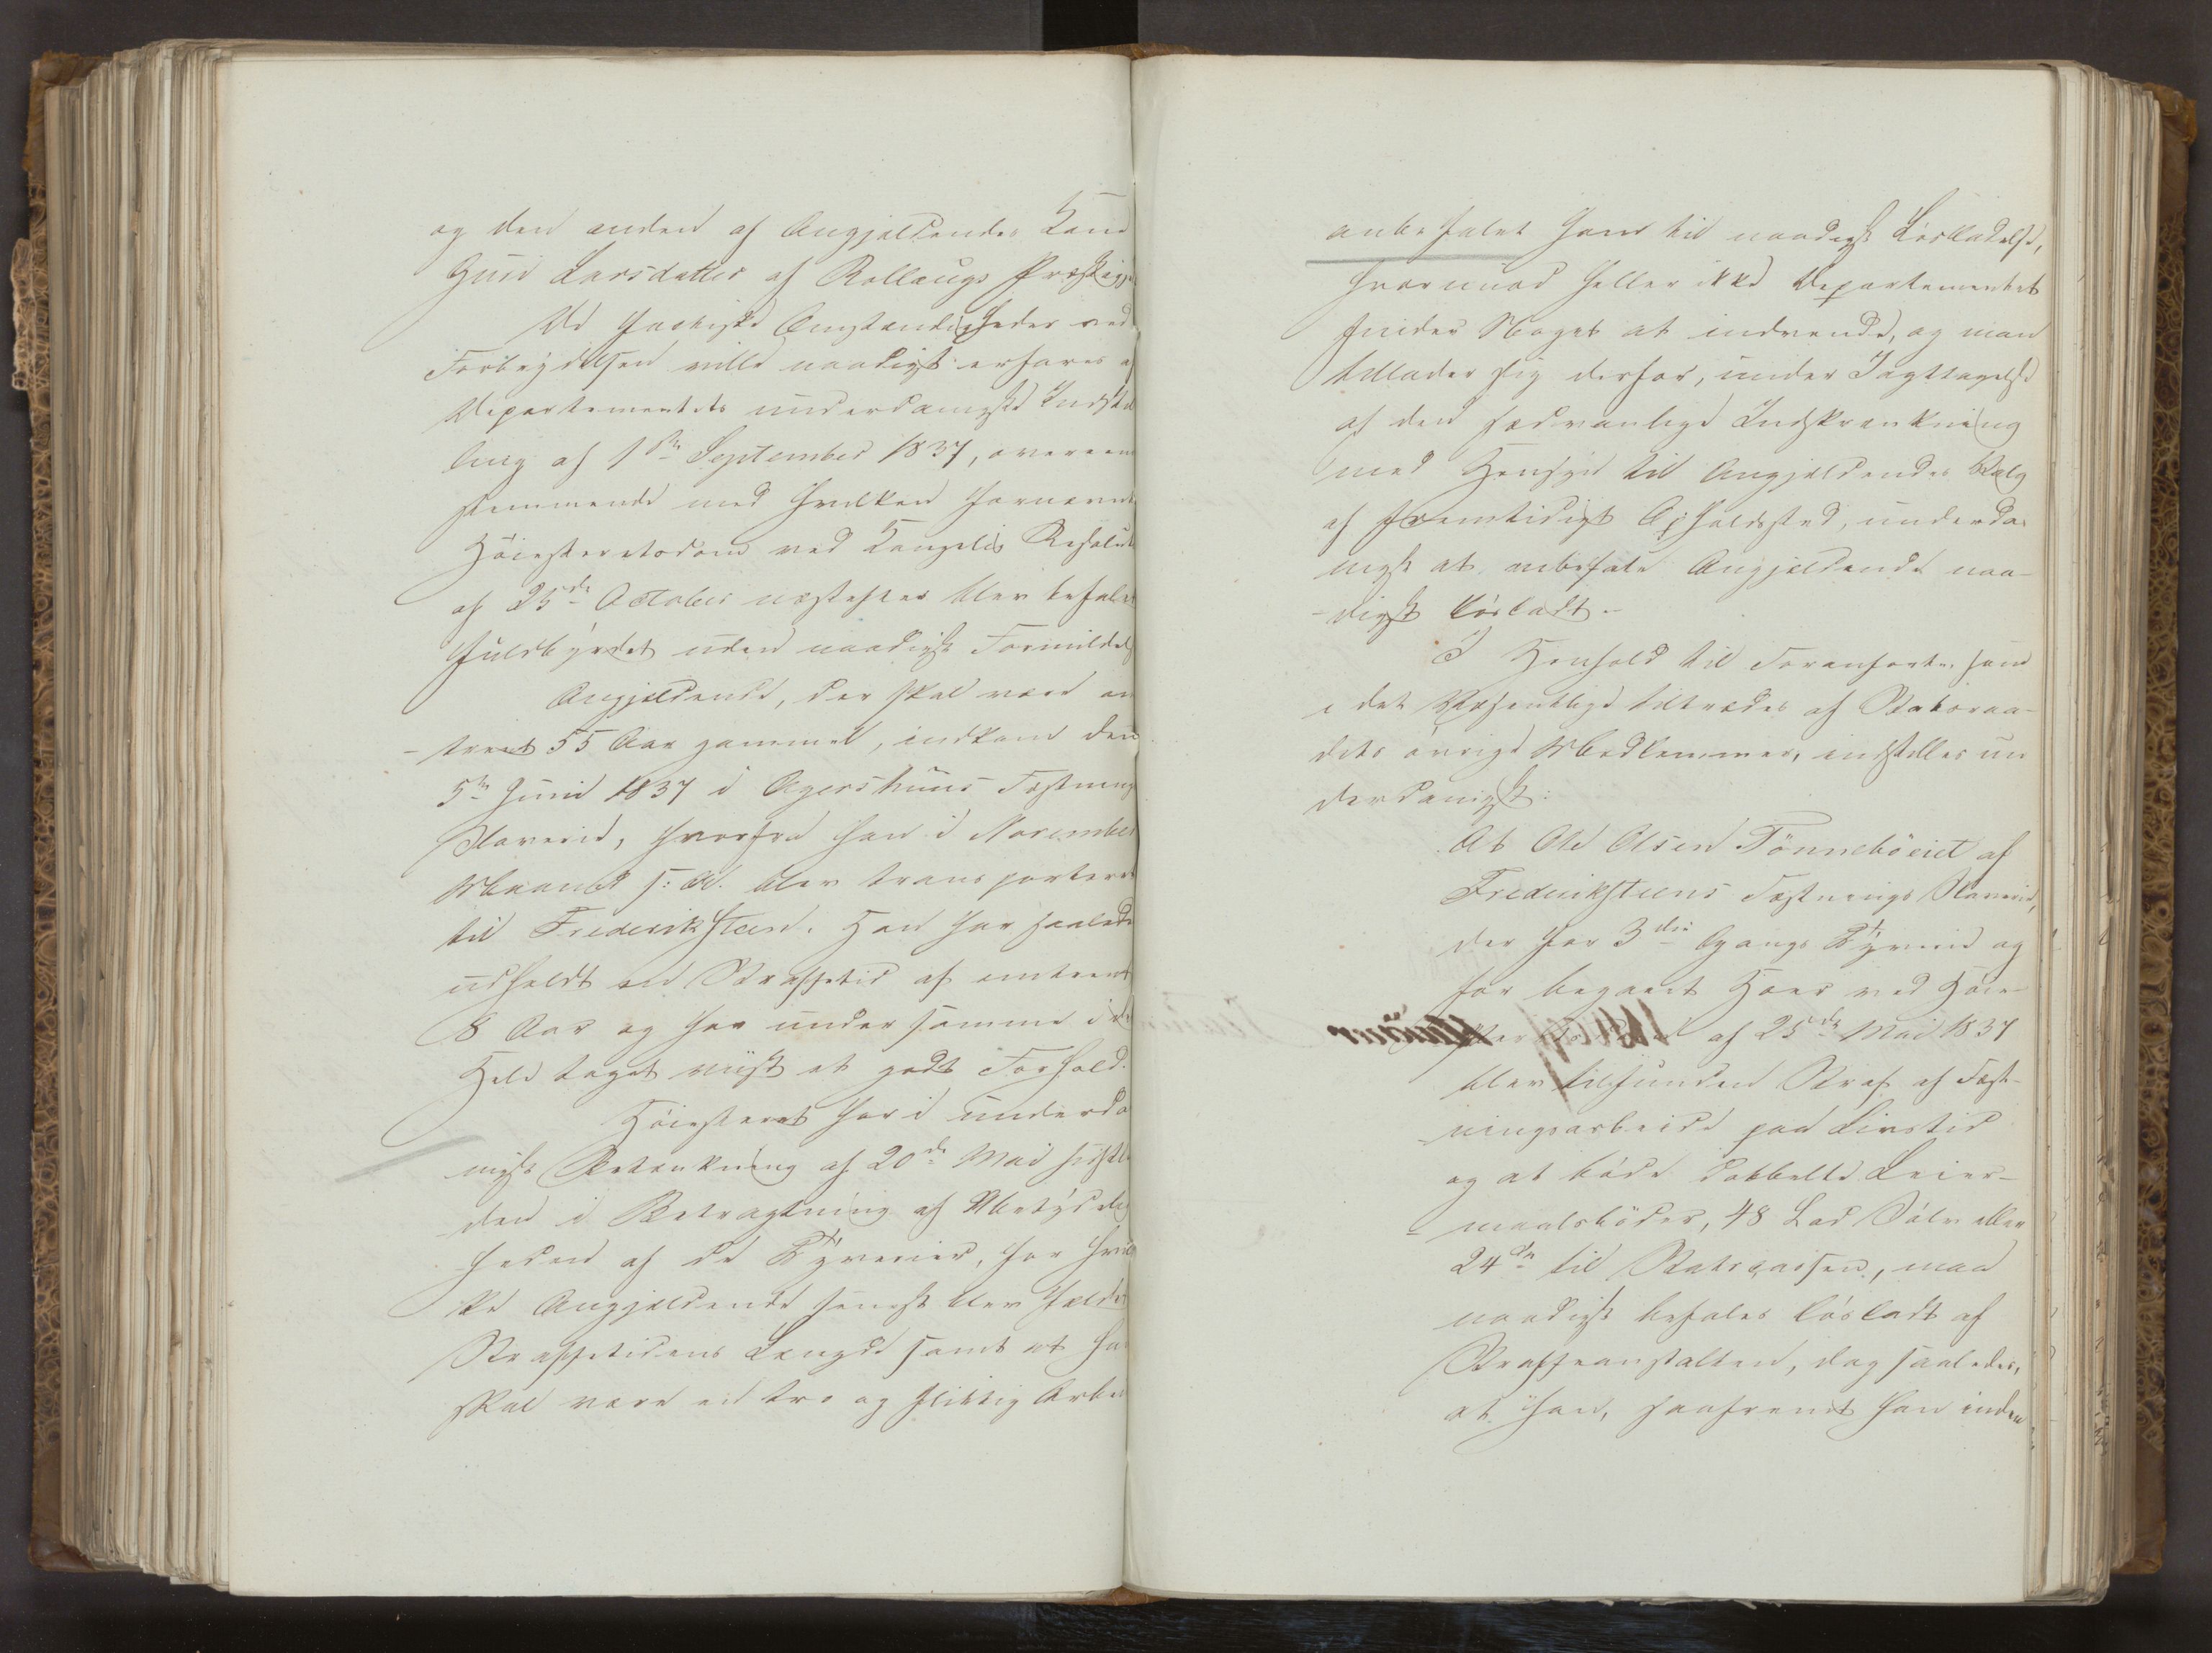 og den anden af Angjeldendes Kone
Guri Larsdatter af Rollaugs Præstegje
De faktiske Omstændigheder ved
Forbrydelsen ville naadigst erfares af
Departementets underdanigste Indstil
ling af 1ste September 1837, overeens
stemmende med hvilken fornævnte
Höiesteretsdom ved Kongelig Resolut
af 25de October næstefter blev befalet
fuldbyrdet uden naadigst Formildels
Angjeldende, der skal være om
-trent 55 Aar gammel, indkom den
5te Juni 1837 i Agershuus Fæstnings
Slaveri, hvorfra han i November
Maaned s: A. blev transporteret
til Frederiksteen. Han har saalede
udholdt en Straffetid af omtrent
8 Aar og har under samme i det
Hele taget viist et godt Forhold.
Höiesteret har i underda
nigst Betænkning af 20de Mai sidstl
den i Betragtning af Ubetydelig
heden af de Tyverier, for hvil
ke Angjeldende senest blev fældet
Straffetidens Længde samt at han
skal være en tro og flittig Arbei
anbefalet ham til naadigst Lösladelse,
hvorimod heller ikke Departementet
finder Noget at indvende, og man
tillader sig derfor, under Iagttagelse
af den sædvanlige Indskrænkning
med Hensyn til Angjeldendes Valg
af fremtidigt Opholdssted, underda-
nigst at anbefale Angjeldende naa-
-digst lösladt.-
I Henhold til Foranförte, som
i det Væsentlige tiltrædes af Statsraa-
dets övrige Medlemmer, indstilles un
derdanigst:
At Ole Olsen Tönneböeiet af
Frederiksteens Fæstnings Slaveri,
der for 3die Gangs Tyveri og
for begaaet Hoer ved Höie-
af 25de Mai 1837
blev tilfunden Straf af Fæst-
ningsarbeide paa Livstid
og at böde dobbelte Leier-
maalsböder, 48 Lod Sölv eller
24 til Statscassen, maa
naadigst befales lösladt af
Straffeanstalten, dog saaledes,
at han, saafremt han inden